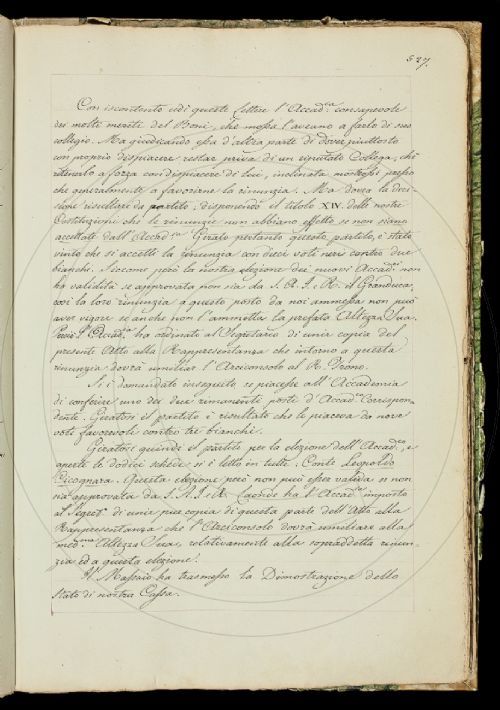 527.
Con iscontento udì queste lettere l'Accad.ia consapevole
dei molti meriti del Boni, che mossa l'aveano a farlo di suo
collegio. Ma giudicando essa d'altra parte di dover piuttosto
con proprio dispiacere restar priva di un riputato Collega, che
ritenerlo a forza con dispiacere di lui, inclinata mostrossi presso
che generalmente a favorirne la rinunzia. Ma dovea la deci-
sione risultare da partito, disponendo il titolo XIV. delle nostre
Costituzioni che le rinunzie non abbiano effetto se non siano
accettate dall'Accad.ia Girato pertanto questo partito, è stato
vinto che si accetti la rinunzia con dieci voti neri contro due
bianchi. Siccome però la nostra elezione dei nuovi Accad.ci non
ha validità se approvata non sia da S. A. I. e R. il Granduca,
così la loro rinunzia a questo posto da noi ammessa non può
aver vigore se anche non l'ammette la prefata Altezza Sua.
Però l'Accad.ia ha ordinato al Segretario di unir copia del
presente Atto alla Rappresentanza che intorno a questa
rinunzia dovrà umiliar l'Arciconsolo al R. Trono.
Si è domandato inseguito se piacesse all'Accademia
di conferire uno dei due rimanenti posti d'Accad.co Corrispon-
dente. Giratosi il partito è risultato che le piaceva da nove
voti favorevoli contro tre bianchi.
Giratosi quindi il partito per la elezione dell'Accad.co, e
aperte le dodici schede si è letto in tutte: Conte Leopoldo
Cicognara. Questa elezione però non può esser valida se non
sia approvata da S. A. I. e R. Laonde ha l'Accad.ia imposto
al Segret.o di unir pur copia di questa parte dell'Atto alla
Rappresentanza che l'Arciconsolo dovrà umiliare alla
med.ma Altezza Sua, relativamente alla sopraddetta rinun-
zia ed a questa elezione.
Il Massaio ha trasmesso la Dimostrazione dello
stato di nostra Cassa.